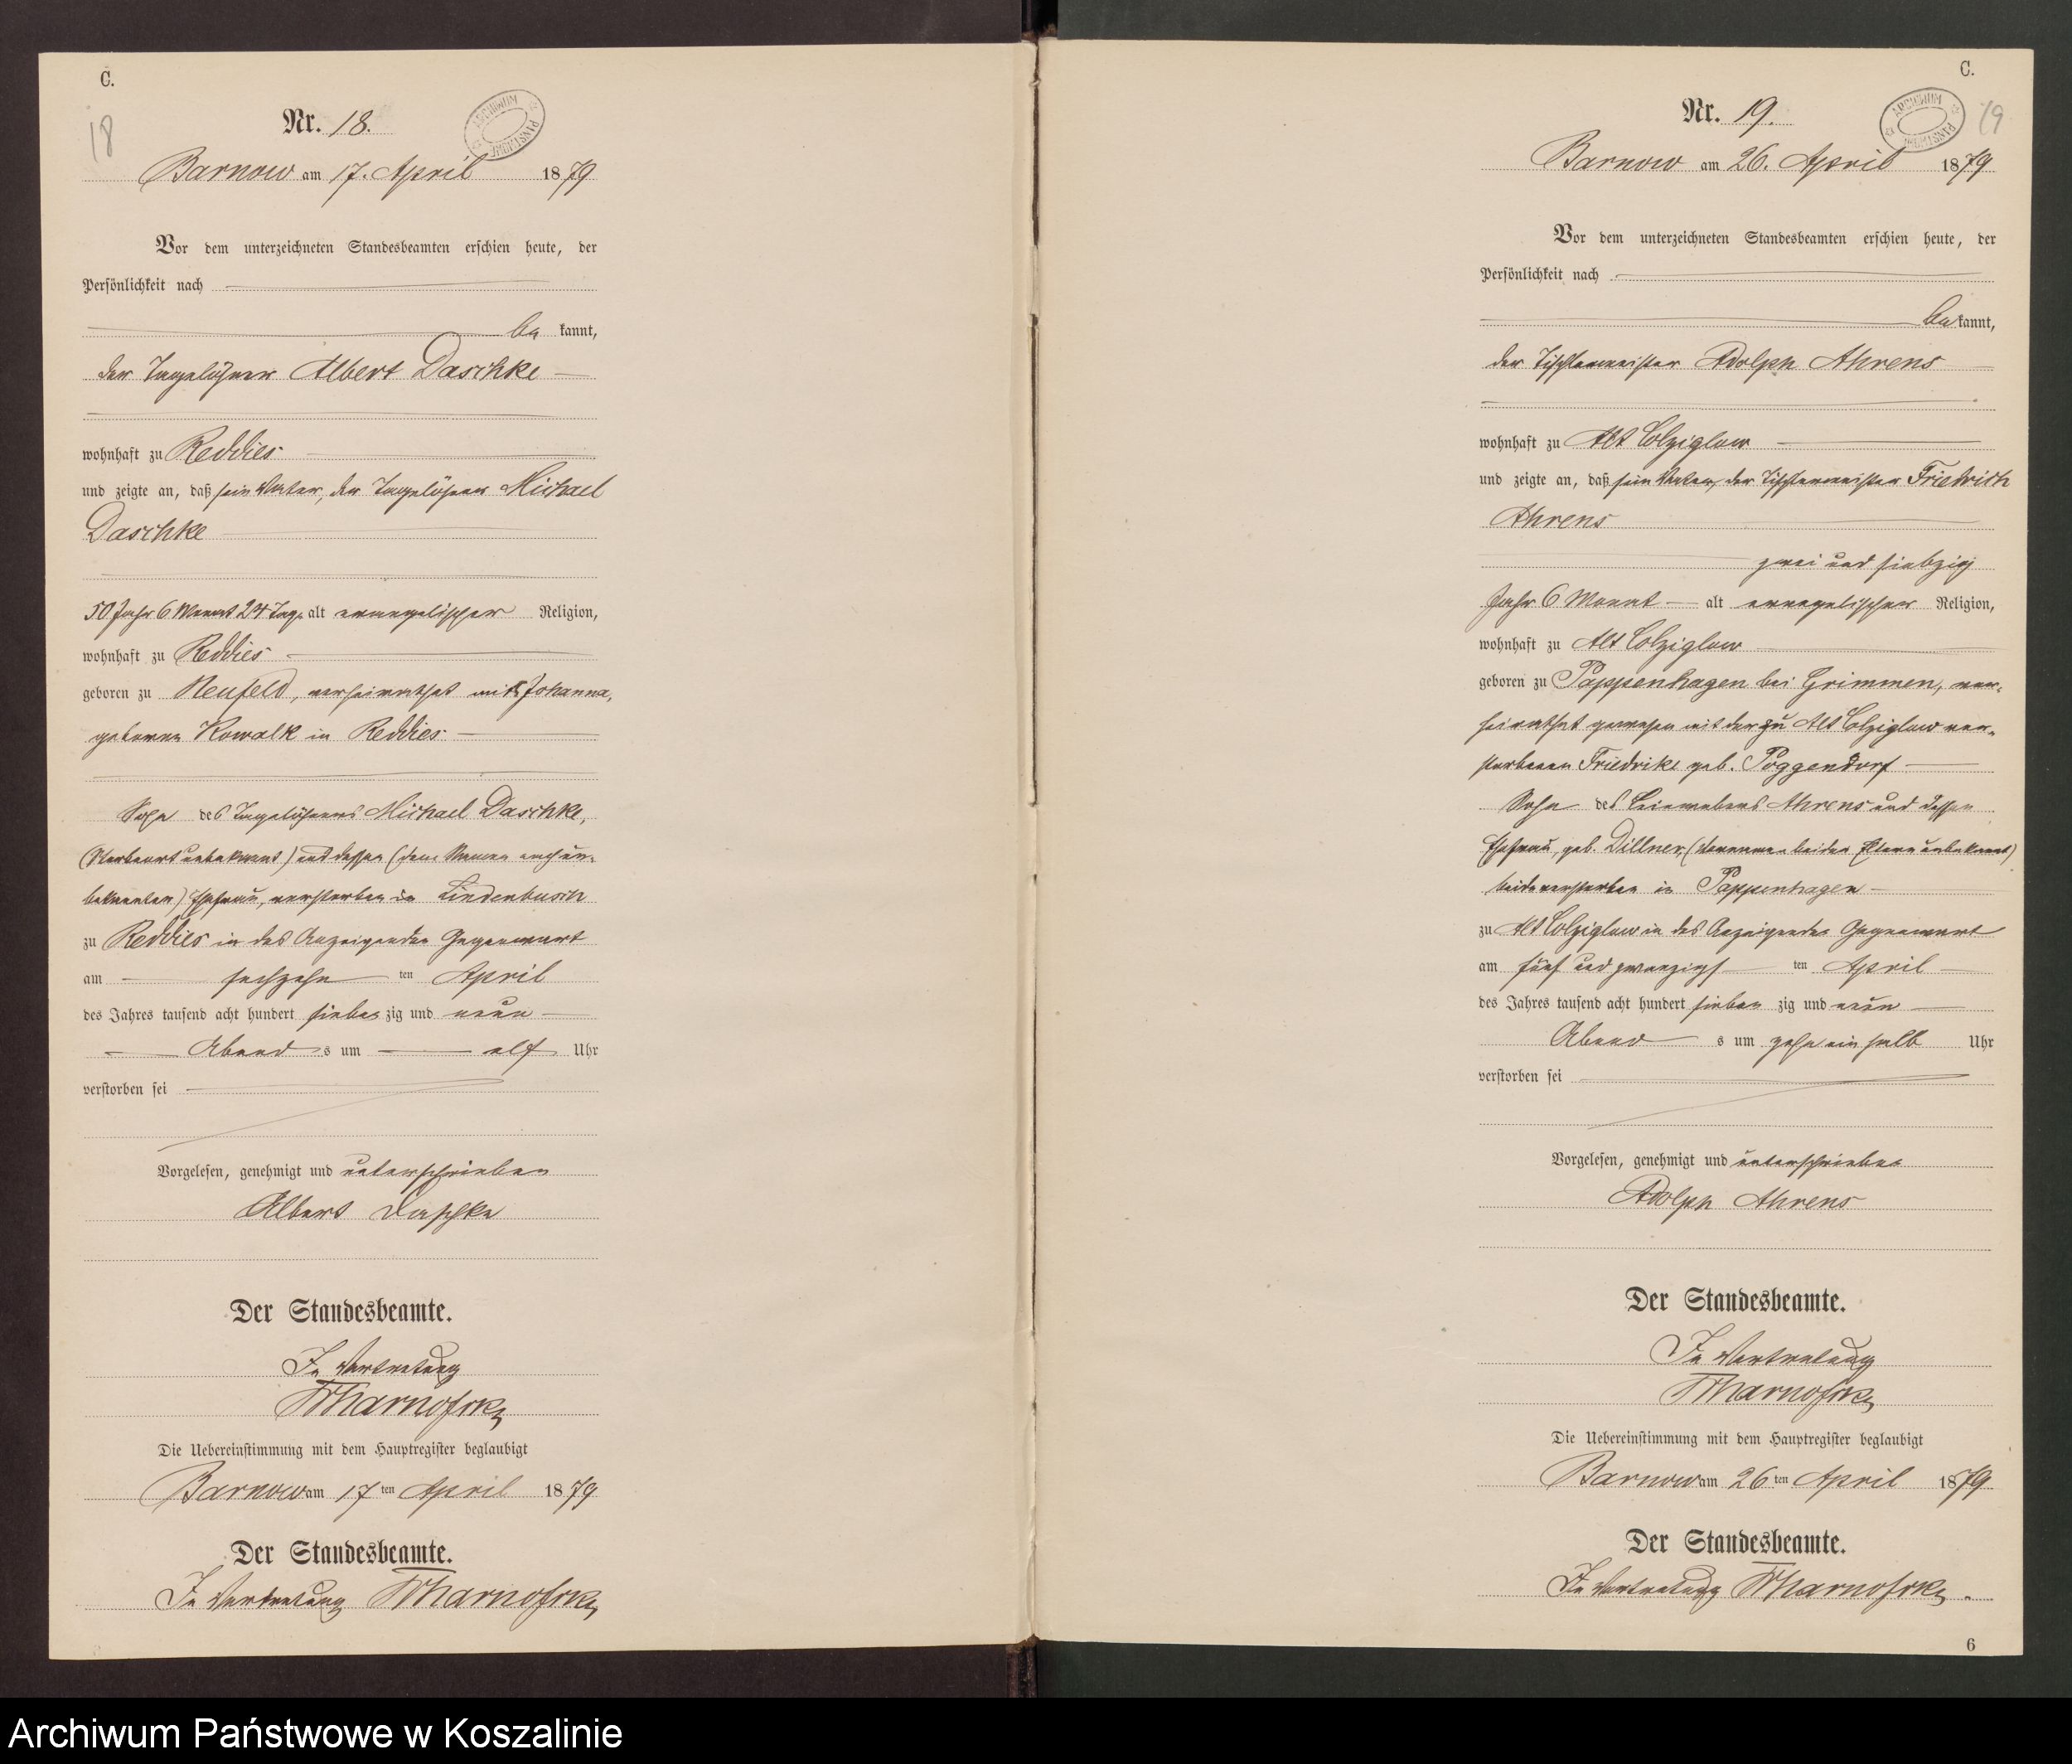 C.
18
Nr. 18.
ARCHIWUM PAŃSTWOWE
Barnow am 17. April 1879
Vor dem unterzeichneten Standesbeamten erschien heute, der
Persönlichkeit nach
be kannt,
der Tagelöhner Albert Daschke
wohnhaft zu Reddies
und zeigte an, daß sein Vater, der Tagelöhner Michael
Daschke
50 Jahr 6 Monat 24 Tage alt evangelischer Religion,
wohnhaft zu Reddies
geboren zu Neufeld, verheirathet mit Johanna,
geborene Kowalk in Reddies
Sohn des Tagelöhners Michael Daschke,
(Sterbeort unbekannt) und dessen (dem Namen nach un-
bekannten) Ehefrau, verstorben in Lindenbusch
zu Reddies in des Anzeigenden Gegenwart
am sechzehn ten April
des Jahres tausend acht hundert sieben zig und neun
Abend s um elf Uhr
verstorben sei
Vorgelesen, genehmigt und unterschrieben
Albert Daschke
Der Standesbeamte.
In Vertretung
Die Uebereinstimmung mit dem Hauptregister beglaubigt
Barnow am 17 ten April 1879
Der Standesbeamte.
In Vertretung
C.
19
Nr. 19.
ARCHIWUM PAŃSTWOWE
Barnow am 26. April 1879
Vor dem unterzeichneten Standesbeamten erschien heute, der
Persönlichkeit nach
be kannt,
der Tischlermeister Adolph Ahrens
wohnhaft zu Alt Colziglow
und zeigte an, daß sein Vater, der Tischlermeister Friedrich
Ahrens
zwei und siebzig
Jahr 6 Monat alt evangelischer Religion,
wohnhaft zu Alt Colziglow
geboren zu Pappenhagen bei Grimmen, ver-
heirathet gewesen mit der zu Alt Colziglow ver-
storbenen Friedrike geb. Poggendorf
Sohn des Leinwebers Ahrens und dessen
Ehefrau, geb. Dillner, (Vornamen beider Eltern unbekannt)
beide verstorben in Pappenhagen
zu Alt Colziglow in des Anzeigenden Gegenwart
am fünf und zwanzigs ten April
des Jahres tausend acht hundert sieben zig und neun
Abend s um zehn ein halb Uhr
verstorben sei
Vorgelesen, genehmigt und unterschrieben
Adolph Ahrens
Der Standesbeamte.
In Vertretung
Die Uebereinstimmung mit dem Hauptregister beglaubigt
Barnow am 26 ten April 1879
Der Standesbeamte.
In Vertretung
6
Archiwum Państwowe w Koszalinie